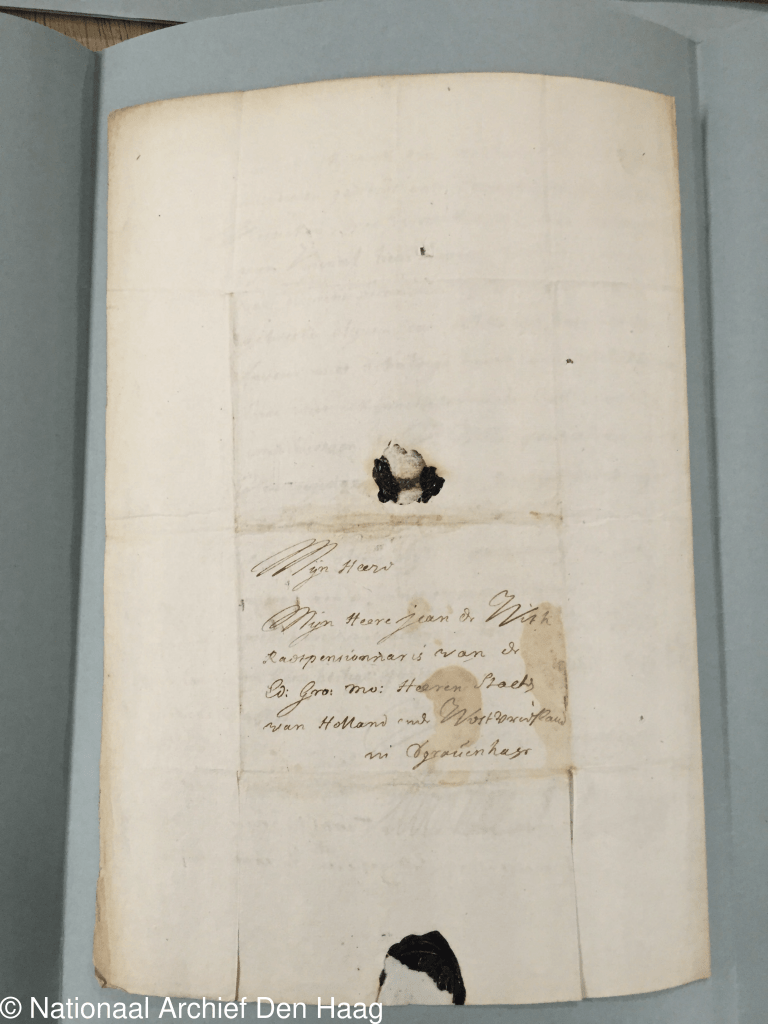 Mijn Heere
Mijn Heere Jean de With
Radtpensionnaris van de
Ed: Gro: Mo: Heeren Staeten
van Holland ende Westvrieslandt
in Sgrauenhage
© Nationaal Archief Den Haag